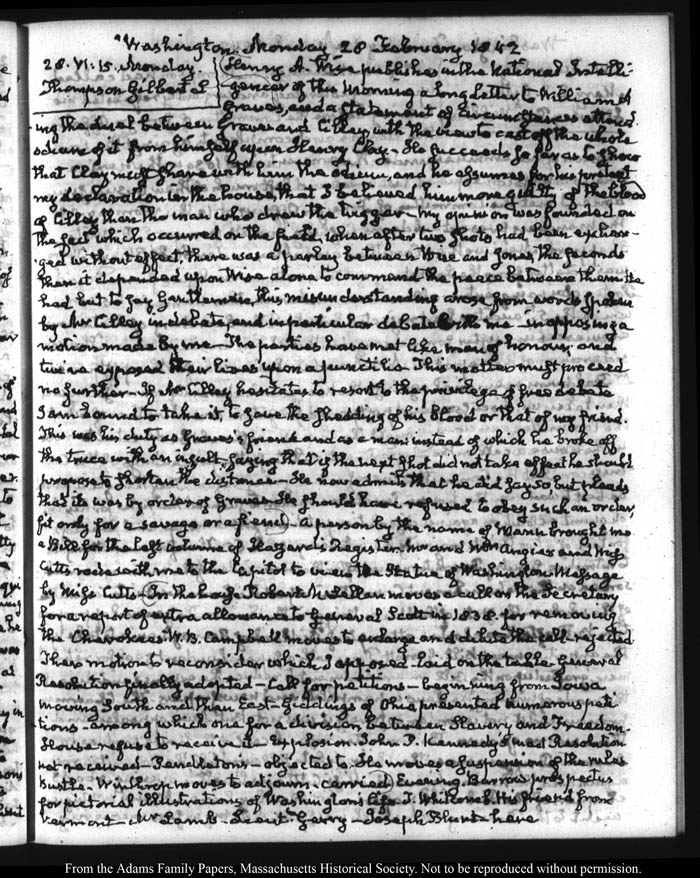 Washington Monday 28 February 1842
28. VI:15. Monday
Thompson Gilbert L
Henry A. Wise publishes in the National Intelli-
gencer of this Morning a long Letter to William J
Graves, and a Statement of Circumstances attend-
ing the duel between Graves and Cilley with the view to cast off the whole
odium of it from himself upon Henry Clay. He succeeds so far as to show
that Clay must share with him the odium, and he assumes for his pretext
my declaration in the house, that I believed him more guilty of the blood
of Cilley than the man who drew the trigger. My opinion was founded on
the fact which occurred on the field, when after two shots had been exchan-
ged without effect, there was a parley between Wise and Jones, the seconds
then it depended upon Wise alone to command the peace between them. He
had but to say Gentlemen, this misunderstanding arose from words spoken
by Mr Cilley in debate, and in particular debate with me in opposing a
motion made by me. The parties have met like men of honour, and
twice exposed their lives upon a punctilio. This matter must proceed
no further. If Mr Cilley hesitates to resort to the privilege of free debate
I am bound to take it, to save the shedding of his blood or that of my friend.
This was his duty as Graves's friend and as a man; instead of which he broke off
the truce with an insult, saying that if the next shot did not take effect he should
propose to shorten the distance. He now admits that he did say so, but pleads
that it was by order of Graves. He should have refused to obey such an order,
fit only for a savage or a fiend). A person by the name of Mann brought me
a Bill for the last volume of Hazard's Register. Mr and Mrs Angier and Miss
Cutts rode with me to the Capitol to view the Statue of Washington. Message
by Miss Cutts. (In the house Robert McClellan moves a call on the Secretary
for a report of extra allowance to General Scott in 1838. for removing
the Cherokees. W. B. Campbell moves to enlarge and dilute the call. rejected
motion to reconsider which I opposed. laid on the table General
Resolution finally adopted. Call for petitions. beginning from Iowa
moving South and than East. Giddings of Ohio presented numerous peti
tions. among which one for a division between Slavery and Freedom.
House refuse to receive it. Explosion. John P. Kennedy's Resolution
not received. Pendleton's. objected to. He moves a suspension of the rules
bustle. Winthrop moves to adjourn. carried) Evening. Barrow prospectus
for pictorial illustrations of Washington's life J. Whitcomb. His friend from
Vermont. Mr Lamb. Gerry. Joseph Blunt here
From the Adams Family Papers, Massachusetts Historical Society. Not to be reproduced without permission.